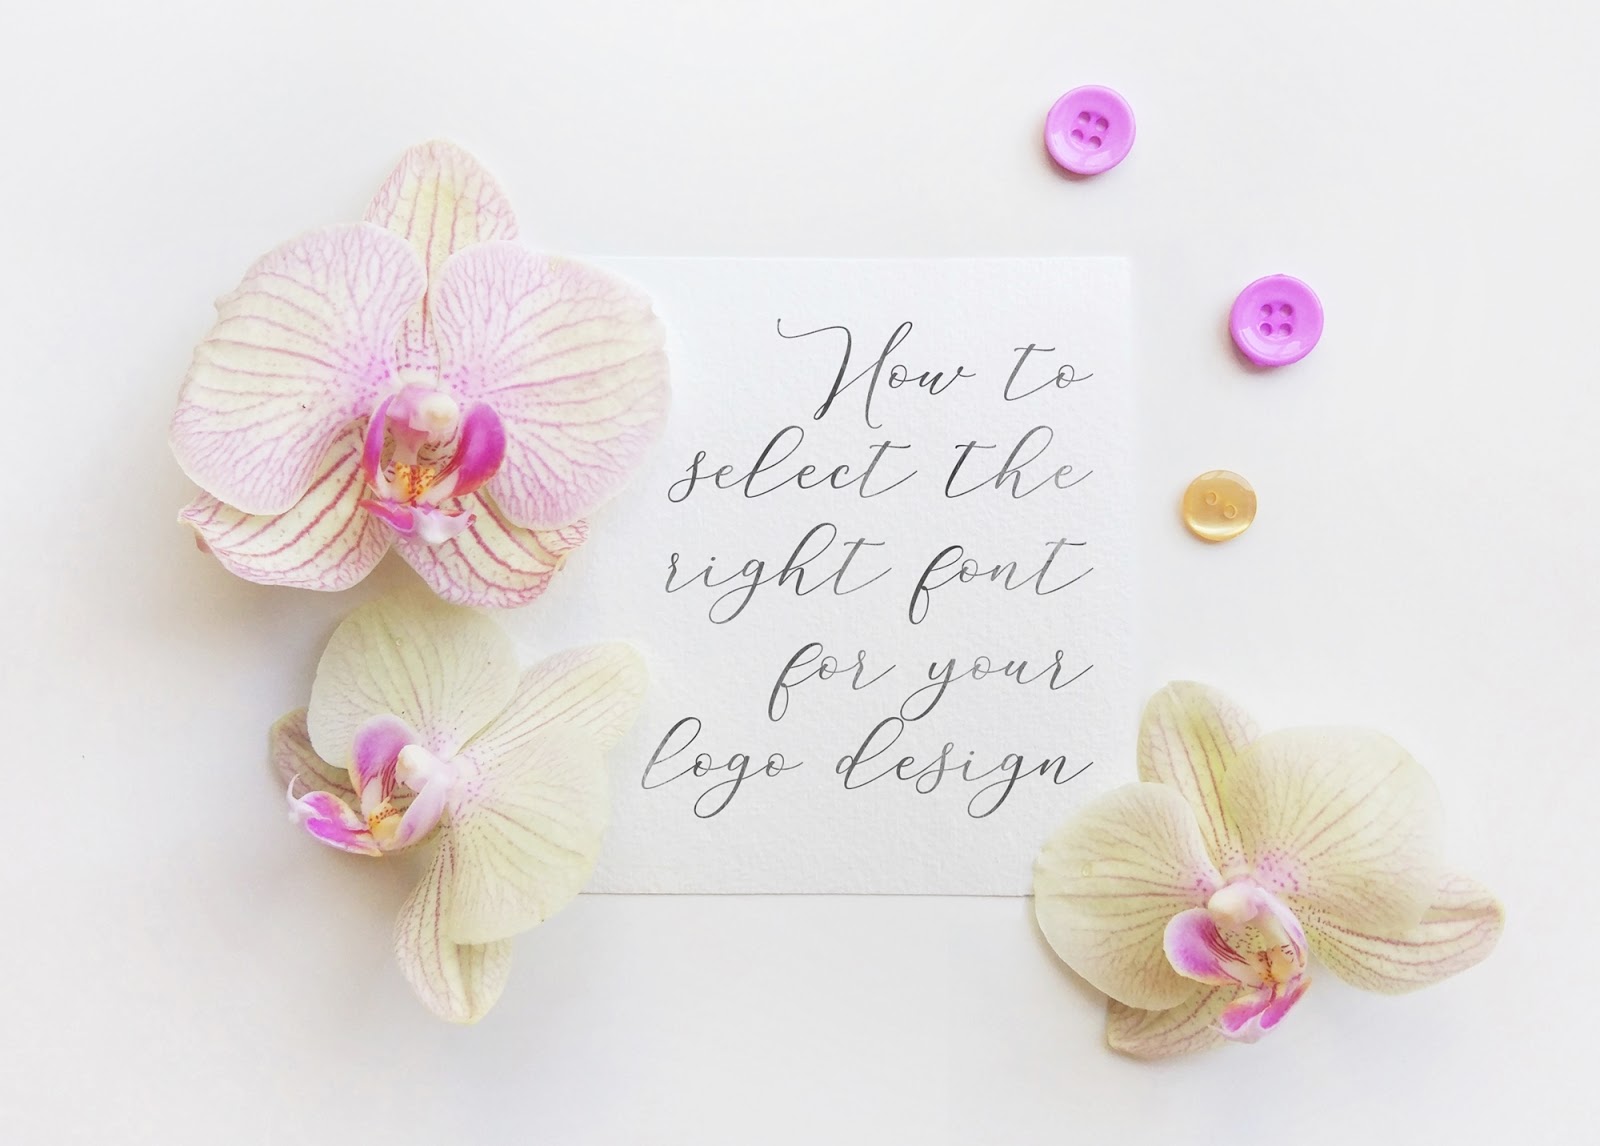 How to
select the
right font
for your
logo design